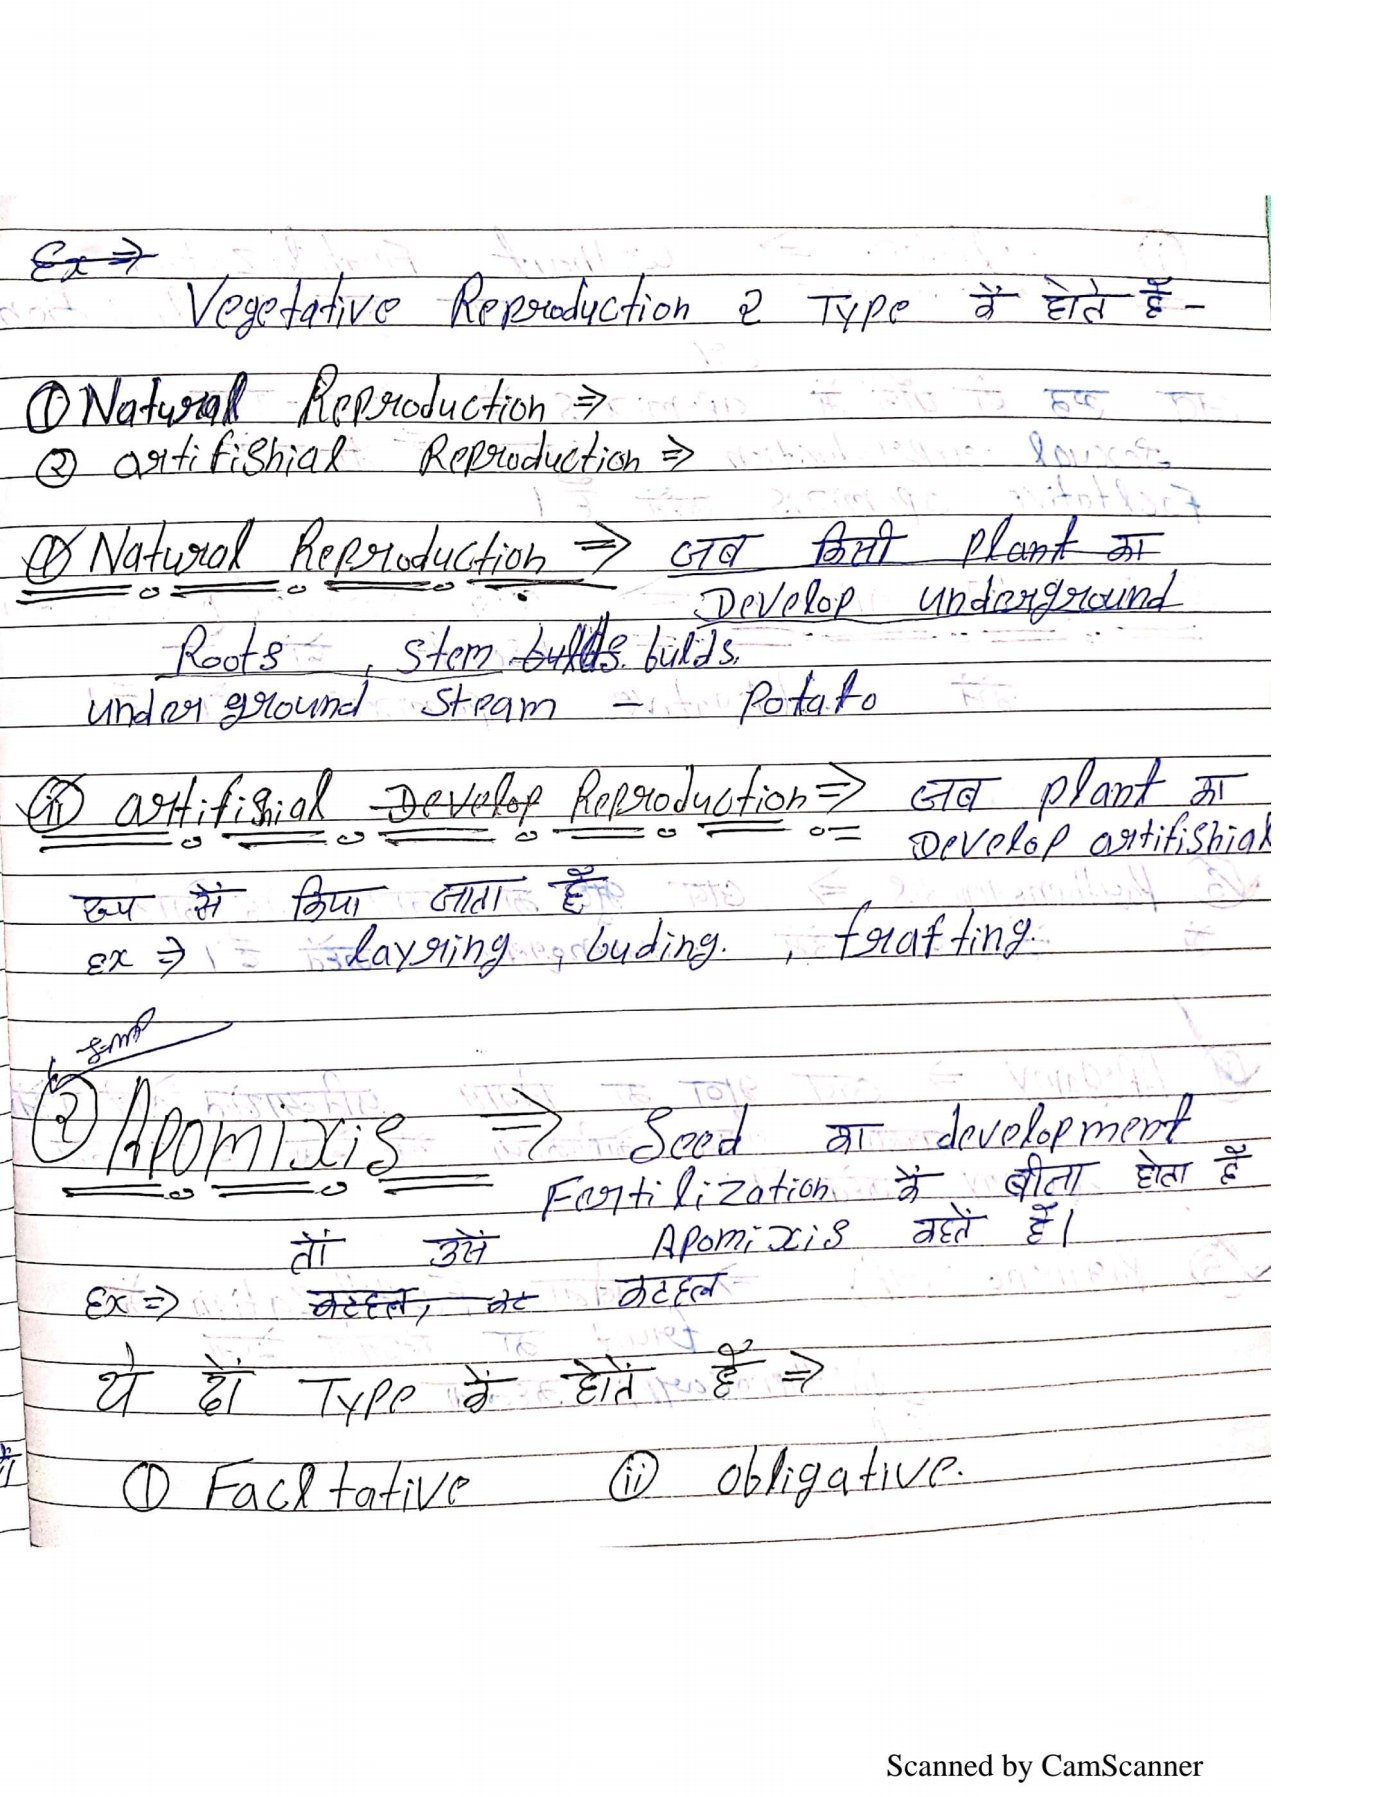 Ex ⇒
Vegetative Reproduction 2 Type के होते हैं -
① Natural Reproduction ⇒
② artifishial Reproduction ⇒
① Natural Reproduction ⇒ जब किसी plant का
Develop underground
Roots , stem builds. builds.
underground Steam - Potato
(ii) artifishial Develop Reproduction ⇒ जब plant का
Develop artifishial
रूप से किया जाता है
Ex ⇒ layring, buding. , frafting.
Imp
② Apomixis ⇒ Seed का development
Fertilization के बीता होता है
तो उसे Apomixis कहते हैं।
Ex ⇒ कटहल, कट कटहल
ये दो Type के होते हैं ⇒
① Facltative (ii) obligative.
Scanned by CamScanner